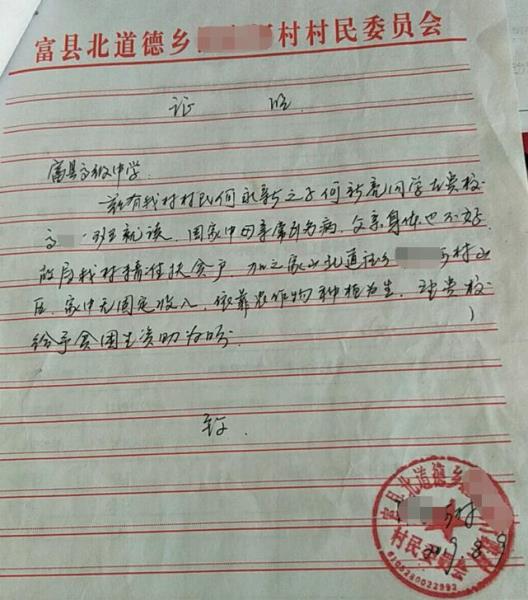 富县北道德乡 村村民委员会
证 明
富县高级中学。
兹有我村村民何永新之子何新亮同学在贵校
高 班就读，因家中母亲常年多病，父亲身体也不好
故属我村精准扶贫户，加之家 北道德乡 村山
区，家中无固定收入，依靠农作物种植为生，望贵校
给予贫困生资助为盼
致
富县北道德乡
村
村民委员会
2019.8.9